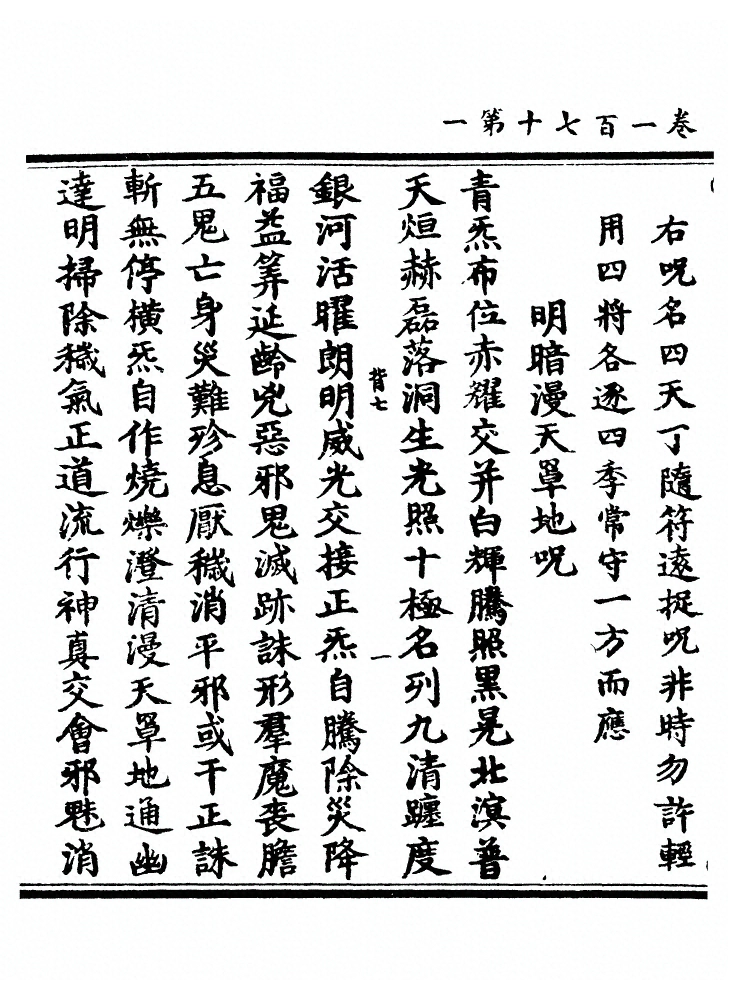 卷一百七十第一
右呪名四天丁隨符遠捉呪非時勿許輕
用四將各逐四季常守一方而應
明暗漫天罩地呪
青炁布位赤耀交并白輝騰照黑晃北溟普
天烜赫磊落洞生光照十極名列九清躔度
背七
一
銀河活曜朗明威光交接正炁自騰除災降
福益筭延齡兇惡邪鬼滅跡誅形羣魔喪膽
五鬼亡身災難殄息厭穢消平邪或干正誅
斬無停橫炁自作燒爍澄清漫天罩地通幽
達明掃除穢氣正道流行神真交會邪魅消